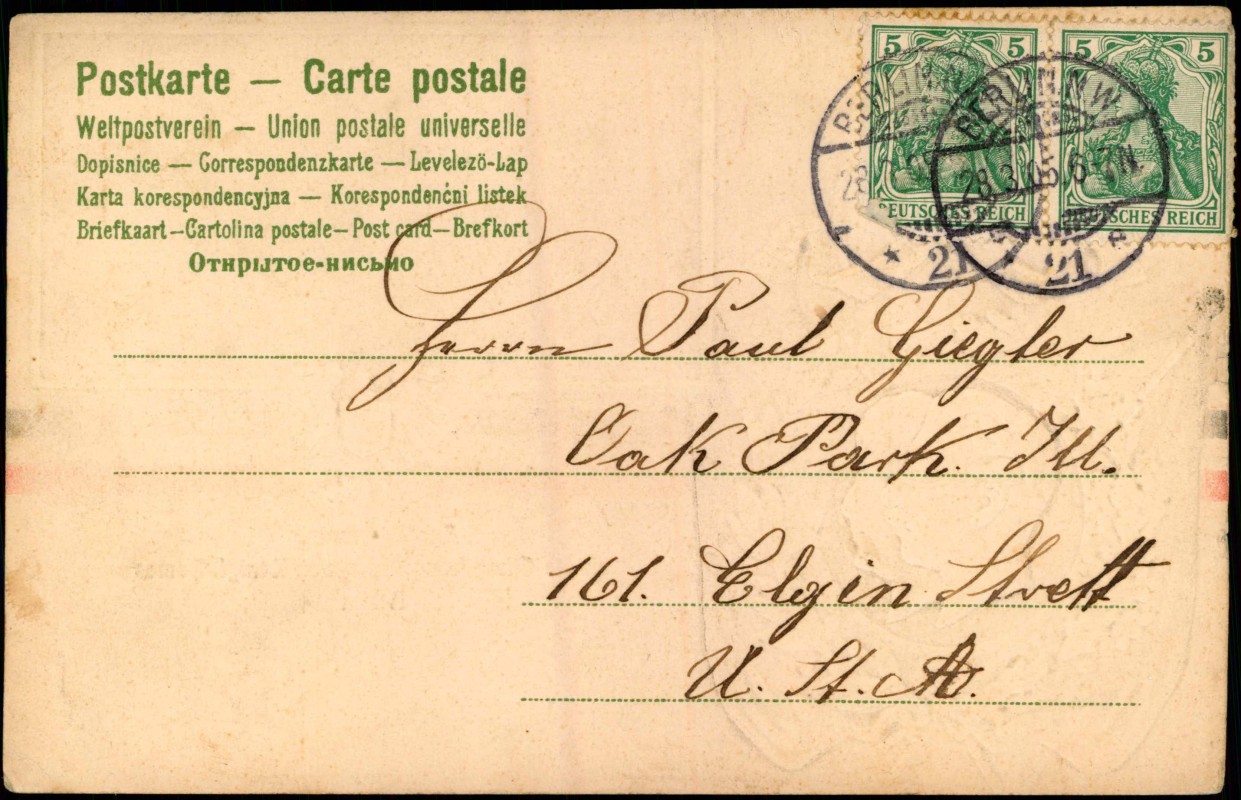 Postkarte — Carte postale
Weltpostverein — Union postale universelle
Dopisnice — Correspondenzkarte — Levelező-Lap
Karta korespondencyjna — Korespondenčni listek
Briefkaart—Cartolina postale—Post card—Brefkort
Открытое-письмо
5 5 5 5
BERLIN N.W.
28.3.05.6-7N.
DEUTSCHES REICH DEUTSCHES REICH
* 21 * 21
Herrn Paul Giegler
Oak Park. Ill.
161. Elgin Strett
U. St. A.